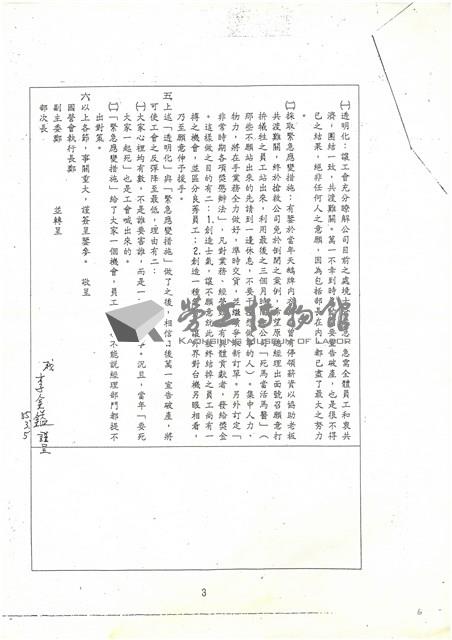 ㈠透明化：讓工會充分瞭解公司目前之處境
急需全體員工和衷共
濟，團結一致，共渡難關。萬一不幸到時
要宣告破產，也是很不得
已之結果，絕非任何人之意願，因為包括部長在內
都已盡了最大之努力
㈡採取緊急應變措施：有鑒於當年天鵝牌內衣
曾有停領薪資以協助老板
共渡難關，終於搶救公司免於倒閉之案例，希望原
總經理出面號召願意打
拚犧牲之員工站出來，利用最後之三個月時間
「死馬當活馬醫」（
那些不願站出來的先請到一邊休息，不要干
想做事的人）。集中人力，
物力，將在手業務全力做好，準時交貨，並繼續爭取新訂單。另外訂定「
非常時期各項獎懲辦法」，凡對業務、經營
有具體貢獻者，發給獎金
。這樣做之目的有二：1.創造士氣，讓不願意就此被終結掉之員工尚有一
搏之機會，並區分良莠員工；2.創造一種
讓外界對台機另眼相看，
乃至願意伸予援手。
五上述「透明化」與「緊急應變措施」做了之後，相信
後萬一宣告破產，將
可使工會之反彈降至最低，其理由有二：
㈠大家心裡均有數，不是誰要害誰，而是一
。況且，當年「要死
大家一起死」也是工會喊出來的。
㈡「緊急應變措施」給了大家一個機會，員工
不能說經理部門都提不
出對策。
六以上各節，事關重大，謹簽呈鑒參。 敬呈
國營會執行長鄭
副主委鄭 並轉呈
部次長
職李金鎰謹呈
85.3.5
勞工博物館
KAOHSIUNG MUSEUM OF LABOR
3
6